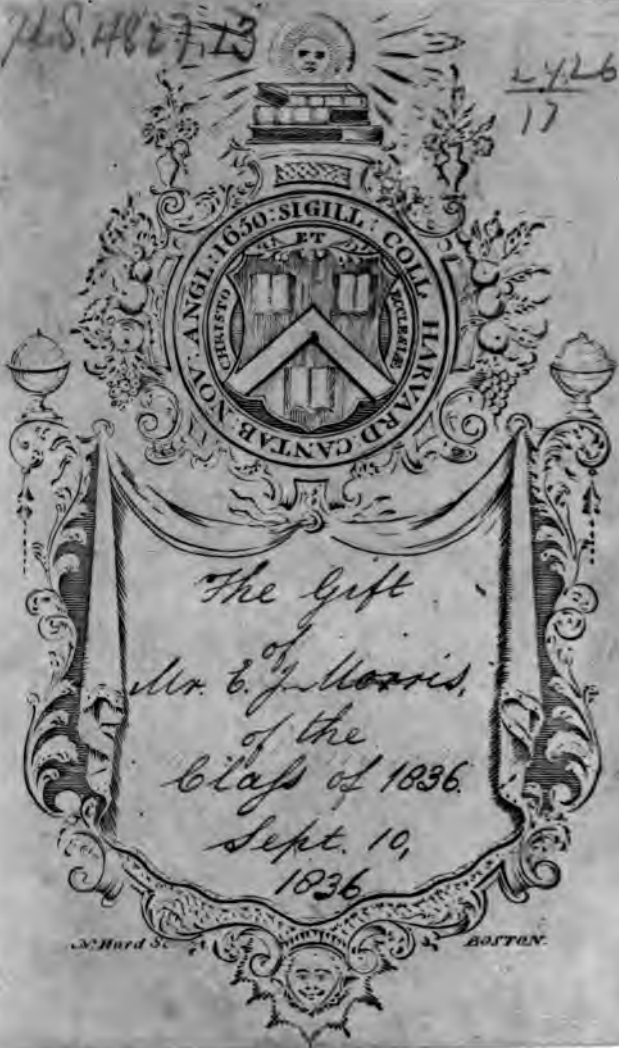 24.26
17
SIGILL: COLL HARVARD: CANTAB: NOV: ANGL: 1650:
CHRISTO ET ECCLESIÆ
The Gift
of
Mr. E. J. Morris,
of the
Claſs of 1836.
Sept. 10,
1836
BOSTON.